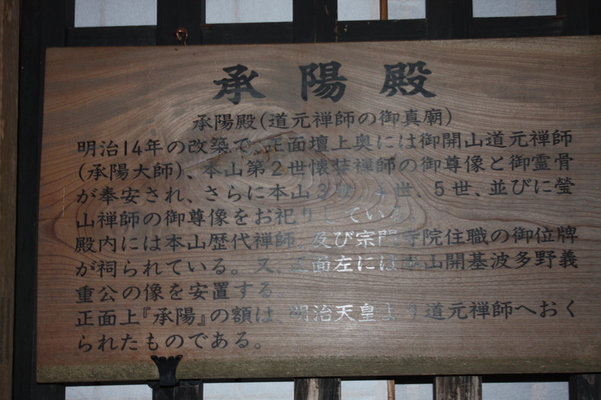 承陽殿
承陽殿(道元禅師の御真廟)
明治14年の改築で、正面壇上奥には御開山道元禅師
(承陽大師)、本山第2世懐弉禅師の御尊像と御霊骨
が奉安され、さらに本山3世、4世、5世、並びに瑩
山禅師の御尊像をお祀りしている。
殿内には本山歴代禅師 及び宗門寺院住職の御位牌
が祠られている。又、正面左には本山開基波多野義
重公の像を安置する
正面上『承陽』の額は、明治天皇より道元禅師へおく
られたものである。